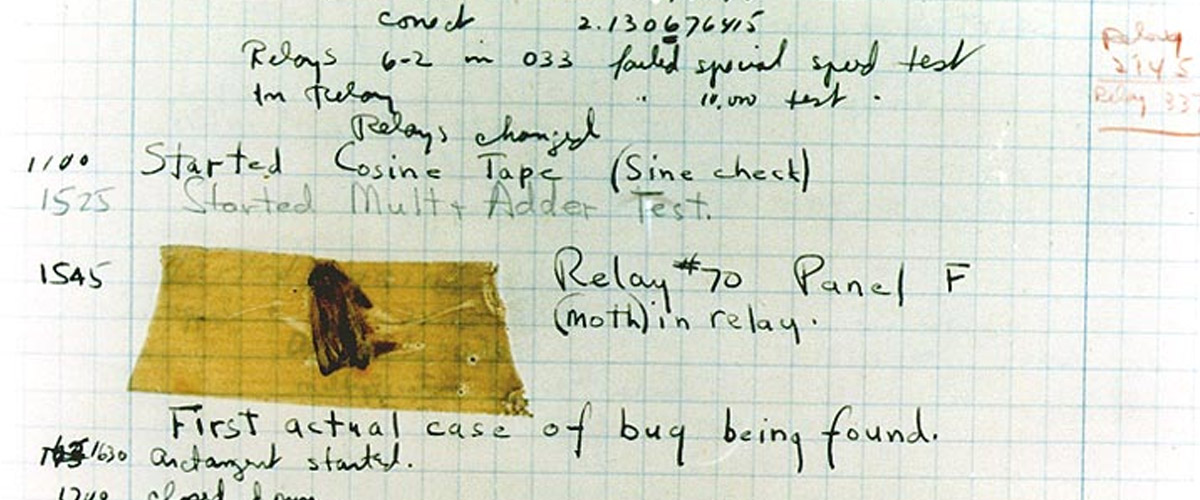 conect 2.130676415
Relays 6-2 in 033 failed special speed test
In Relay " 10,000 test.
Relays changed
1100 Started Cosine Tape (Sine check)
1525 Started Mult + Adder Test.
1545 Relay #70 Panel F
(moth) in relay.
First actual case of bug being found.
1630 arctangent started.
1700 closed down
Relay
2145
Relay 33